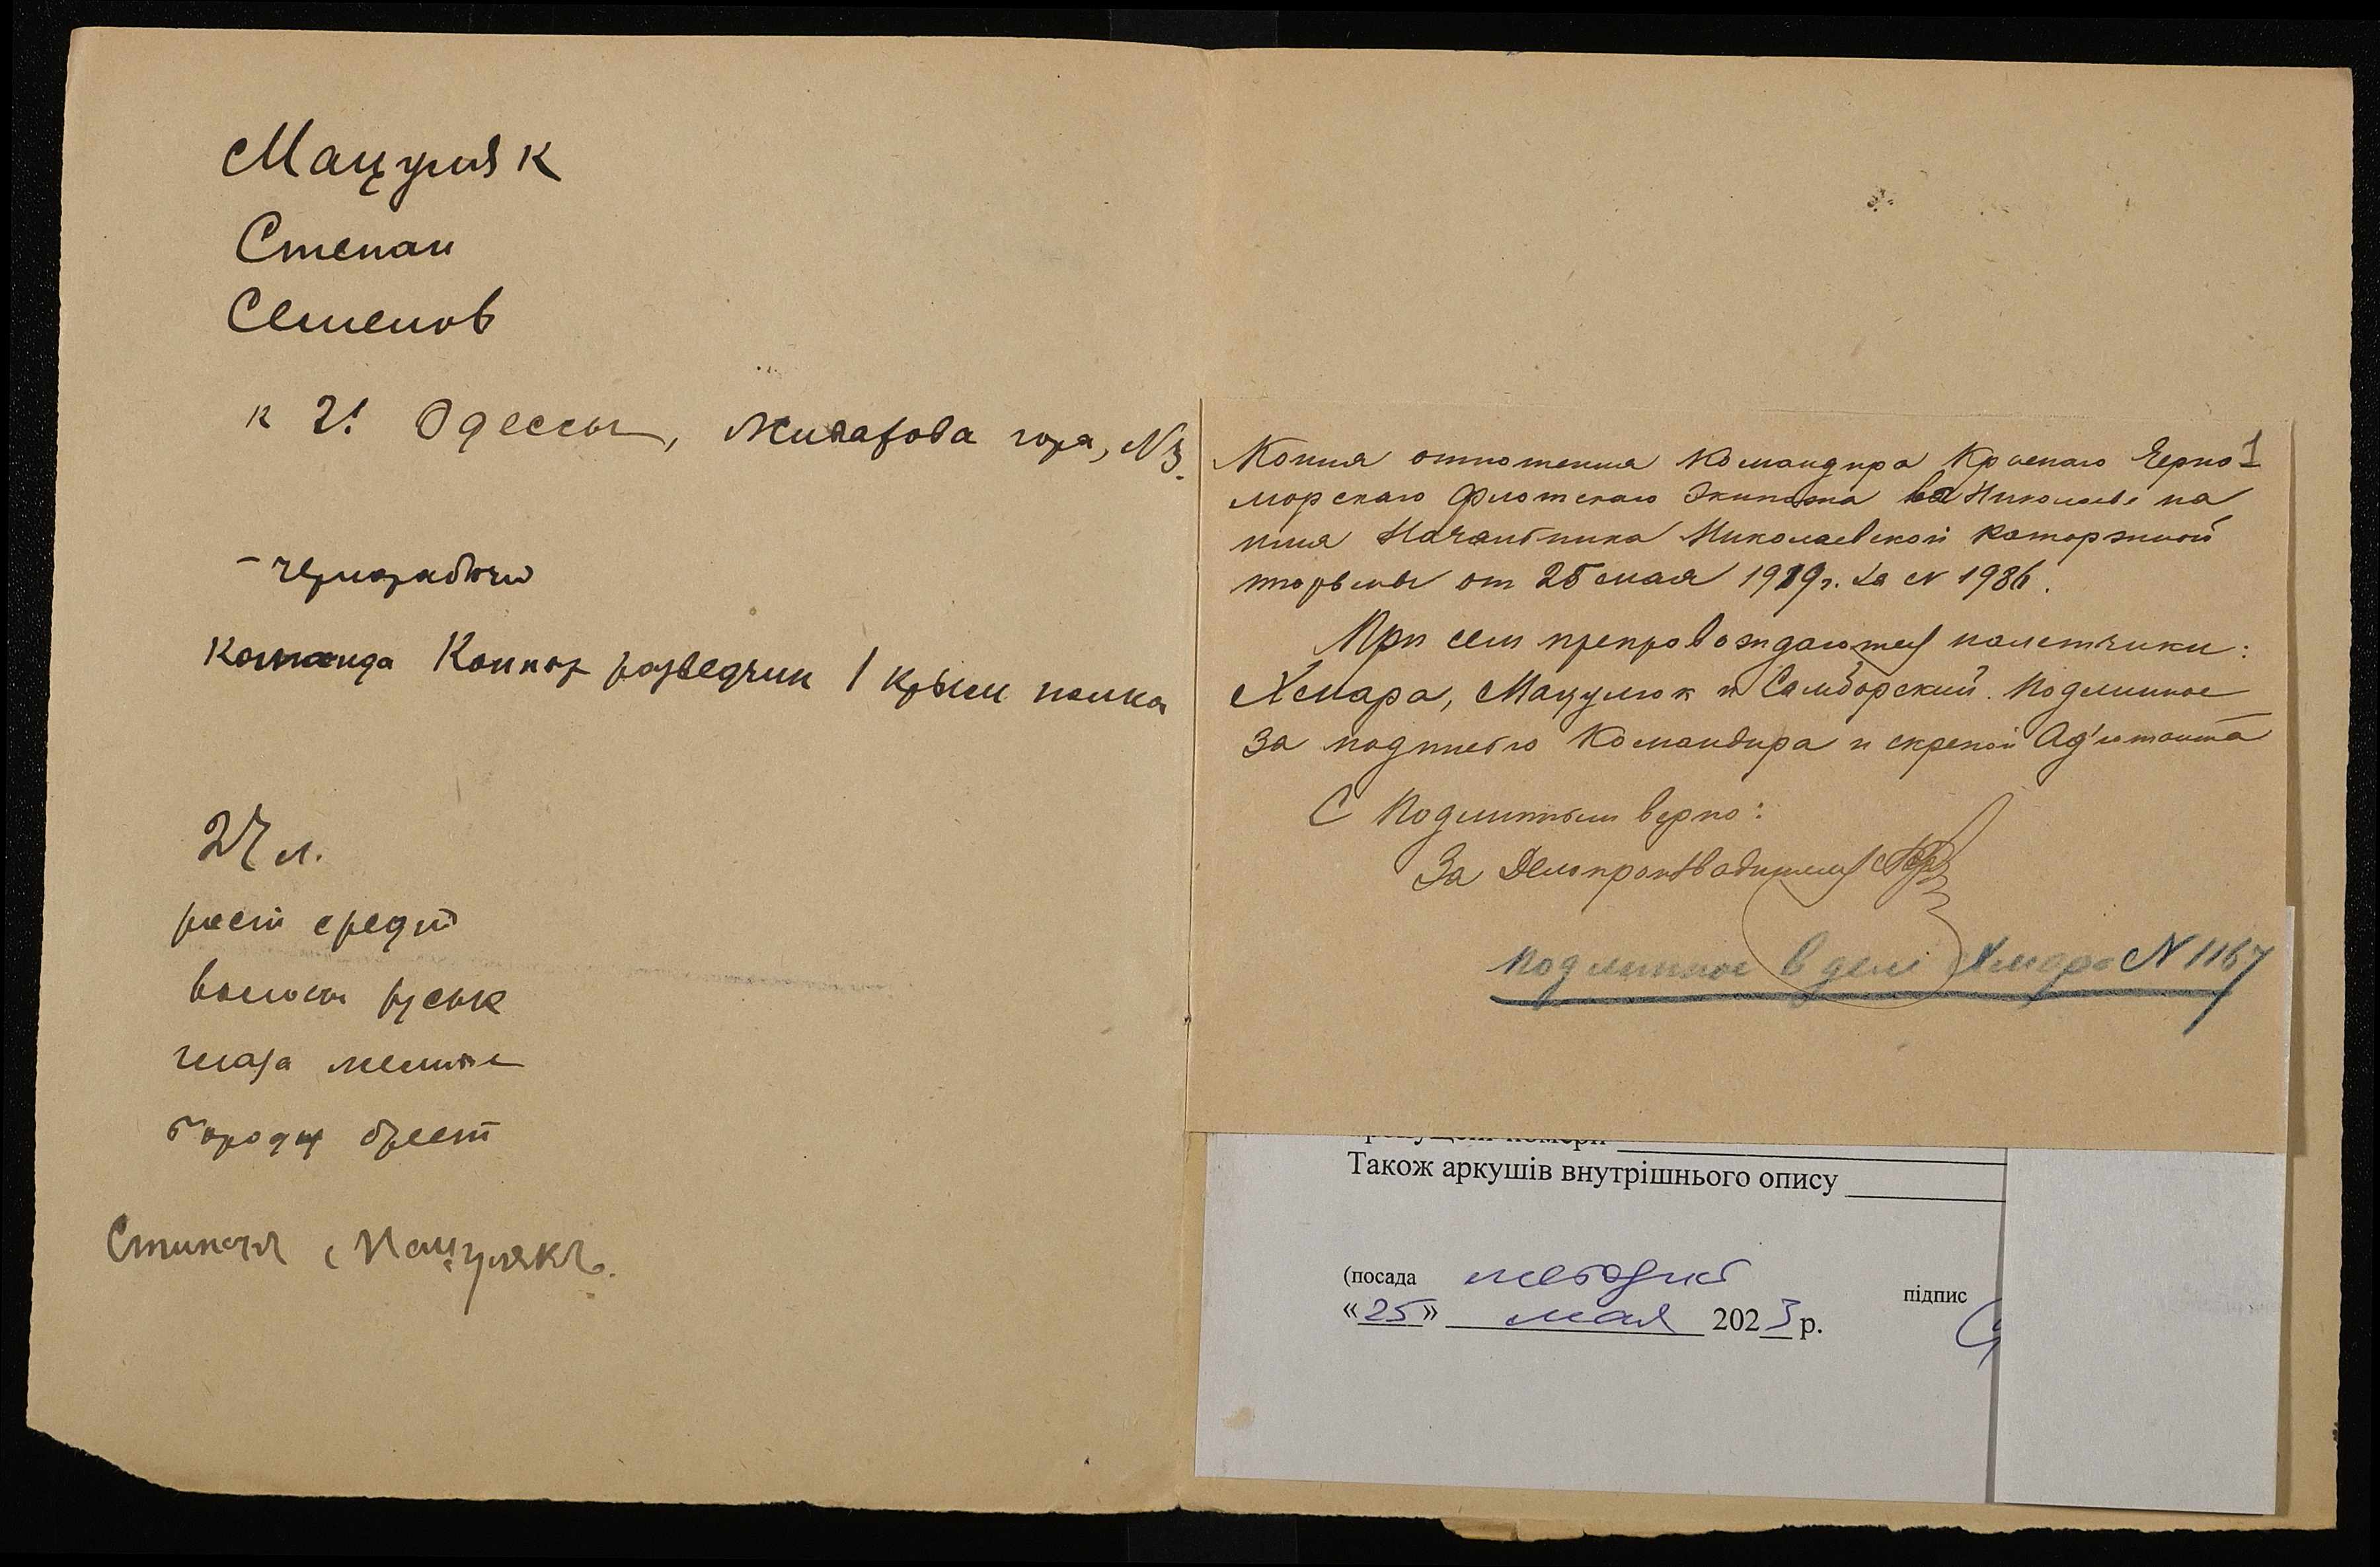 Мацуляк
Степан
Семенов
к г. Одессы, Живахова гора, №3.
- чернорабочий
Команда Конных разведчик 1 Крым полка
27 л.
рост средн
волосы русые
глаза
бороду бреет
Мацулякъ.
1
Копия отношения Командира Красного Черно
морскаго Флотскаго Экипажа в Николаеве на
имя Начальника Николаевской Каторжной
тюрьмы от 25 мая 1919 г. за № 1986.
При сем препровождаются налетчики:
Хмара, Мацулюк и Самборский. Подлинное
за подписью Командира и скрепой Ад'ютанта
С Подлинным верно:
За Делопроизводителя
Подлинное в деле Хмара № 1167
Також аркушів внутрішнього опису
(посада методист
підпис
«25» мая 2023 р.